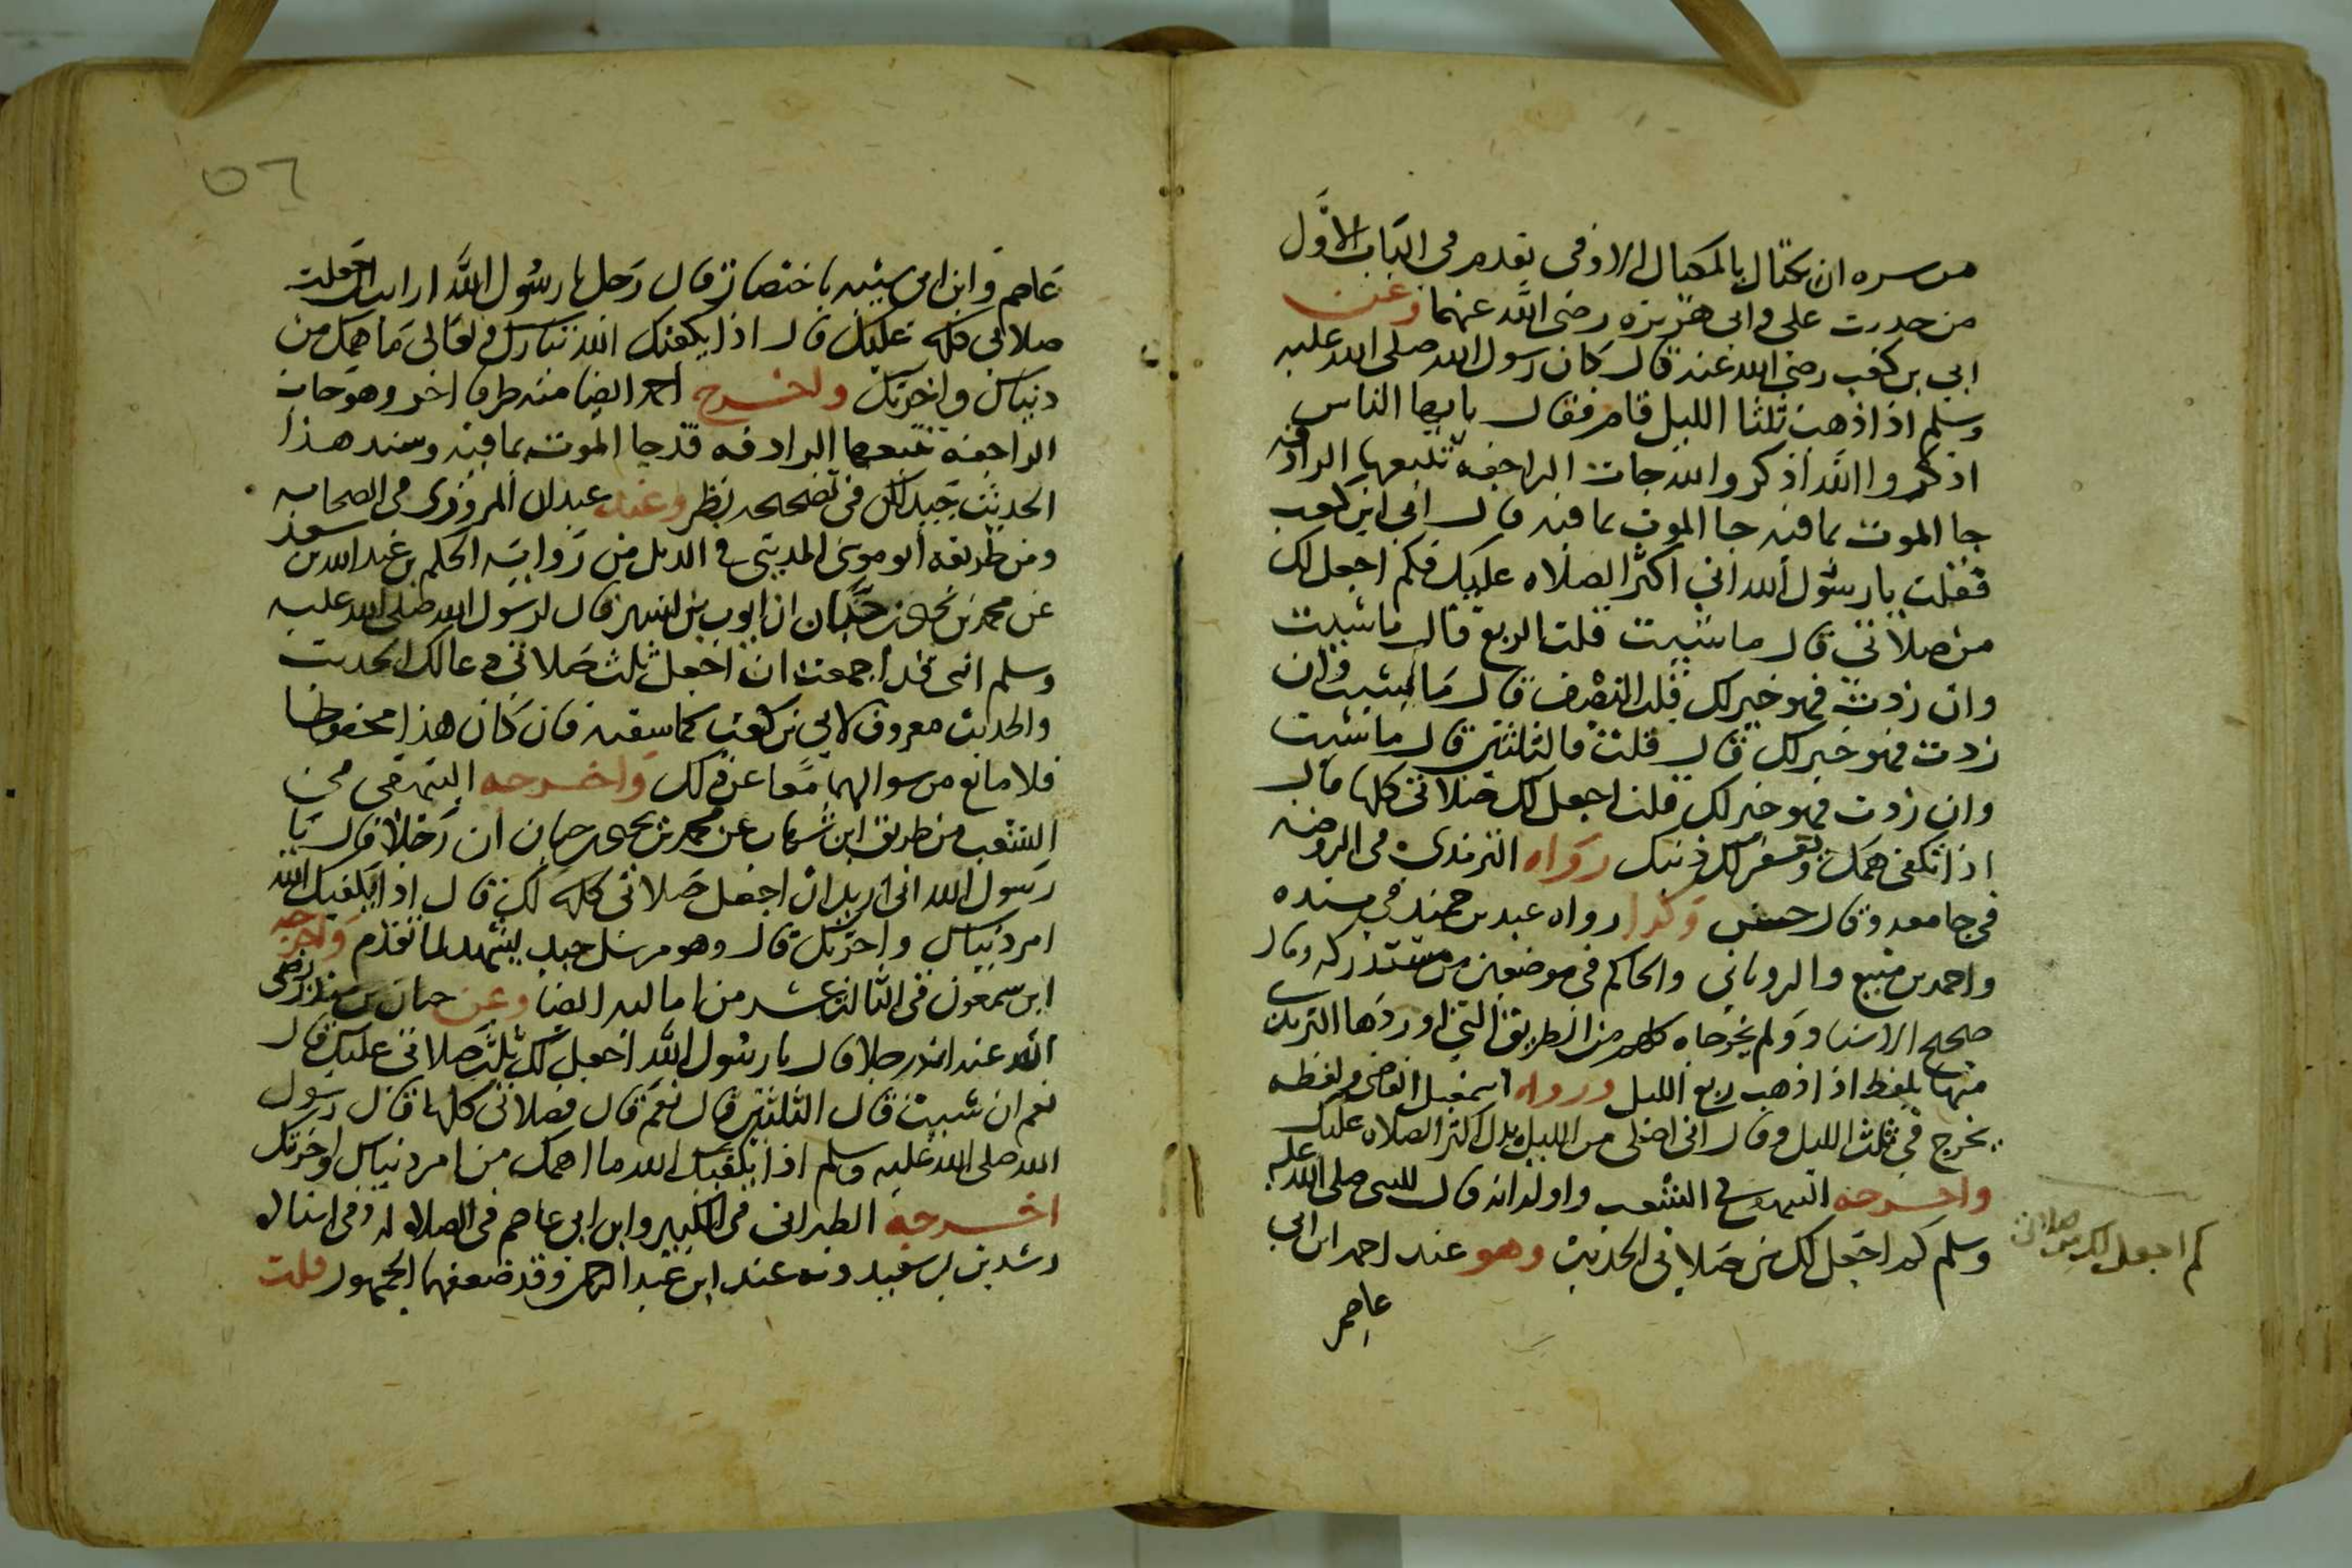 من سره ان يكتال بالمكيال الاوفى تقدم في الباب الاول
من حديث علي وابي هريرة رضي الله عنهما وعن
ابي بن كعب رضي الله عنه قال كان رسول الله صلى الله عليه
وسلم اذا ذهب ثلثا الليل قام فقال يا ايها الناس
اذكروا الله اذكروا الله جات الراجفة تتبعها الرادفة
جا الموت بما فيه جا الموت بما فيه قال ابي ابن كعب
فقلت يا رسول الله اني اكثر الصلاه عليك فكم اجعل لك
من صلاتي قال ما شيت قلت الربع قال ما شيت
وان زدت فهو خير لك قلت النصف قال ما شيت وان
زدت فهو خير لك قال قلت فالثلثين قال ما شيت
وان زدت فهو خير لك قلت اجعل لك صلاتي كلها قال
اذا تكفى همك ويغفر لك ذنبك رواه الترمذي في
في جامعه وقال حسن وكذا رواه عبد بن حميد في مسنده
واحمد بن منيع والروياني والحاكم في موضعين من مستدركه وقال
صحيح الاسناد ولم يخرجاه من الطريق التي اوردها
منها بلفظ اذا ذهب ربع الليل ورواه اسمعيل القاضي ولفظه
يخرج في ثلث الليل وقال اني اصلي من الليل بدل اكثر الصلاه عليك
واخرجه البيهقي في الشعب واوله انه قال للنبي صلى الله عليه
وسلم كم اجعل لك من صلاتي الحديث وهو عند احمد ابن ابي
عاصم
كم اجعل لك من صلاتي
٥٦
عاصم وابن ابي شيبه باختصار قال رجل يا رسول الله ارايت ان جعلت
صلاتي كلها عليك قال اذا يكفيك الله تبارك وتعالى ما همك من
دنياك واخرتك واخرج احمد ايضا منه طرفا اخر وهو جات
الراجفة تتبعها الرادفه قد جا الموت بما فيه وسند هذا
الحديث جيد لكن في تصحيحه نظر وعند عبدان المروزي في الصحابه
ومن طريقه ابو موسى المديني في الذيل من رواية الحكم بن عبد الله بن سعد
عن محمد بن يحيى بن حبان ان ايوب بن بشير قال لرسول الله صلى الله عليه
وسلم اني قد اجمعت ان اجعل ثلث صلاتي دعا لك الحديث
والحديث معروف لابي بن كعب كما سقته فان كان هذا محفوظا
فلا مانع من سوالهما معا عن ذلك واخرجه البيهقي في
الشعب من طريق ابن شهاب عن محمد بن يحيى بن حبان ان رجلا قال يا
رسول الله اني اريد ان اجعل صلاتي كلها لك قال اذا يكفيك الله
امر دنياك واخرتك قال وهو مرسل جيد يشهد لما تقدم واخرجه
ابن سمعون في الثالث عشر من اماليه ايضا وعن حبان بن منقذ رضي
الله عنه ان رجلا قال يا رسول الله اجعل لك ثلث صلاتي عليك قال
نعم ان شيت قال الثلثين قال نعم قال فصلاتي كلها قال رسول
الله صلى الله عليه وسلم اذا يكفيك الله ما اهمك من امر دنياك واخرتك
اخرجه الطبراني في الكبير وابن ابي عاصم في الصلاه له وفي اسناده
رشدين بن سعيد وقد ضعفهما الجمهور قلت